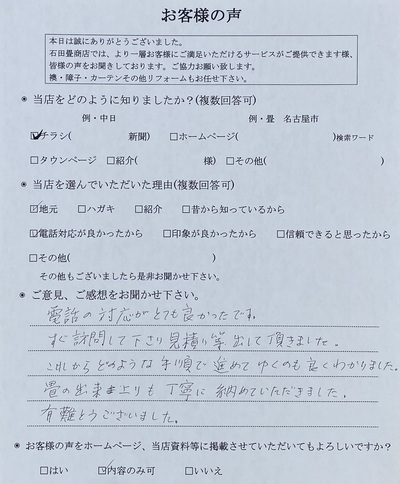 お客様の声
本日は誠にありがとうございました。
石田畳商店では、より一層お客様にご満足いただけるサービスがご提供できます様、
皆様の声をお聞きしております。ご協力お願い致します。
襖・障子・カーテンその他リフォームもお任せ下さい。
◉ 当店をどのように知りましたか?(複数回答可)
例・中日 例・畳 名古屋市
☑チラシ( 新聞) □ホームページ( )検索ワード
□タウンページ □紹介( 様) □その他( )
◉ 当店を選んでいただいた理由(複数回答可)
☑地元 □ハガキ □紹介 □昔から知っているから
☑電話対応が良かったから □印象が良かったから □信頼できると思ったから
□その他( )
その他もございましたら是非お聞かせ下さい。
◉ ご意見、ご感想をお聞かせ下さい。
電話の対応がとても良かったです。
すぐ訪問して下さり見積り等出して頂きました。
これからどのような手順で進めてゆくのも良くわかりました。
畳の出来上りも丁寧に納めていただきました。
有難とうございました。
◉ お客様の声をホームページ、当店資料等に掲載させていただいてもよろしいですか?
□はい ☑内容のみ可 □いいえ